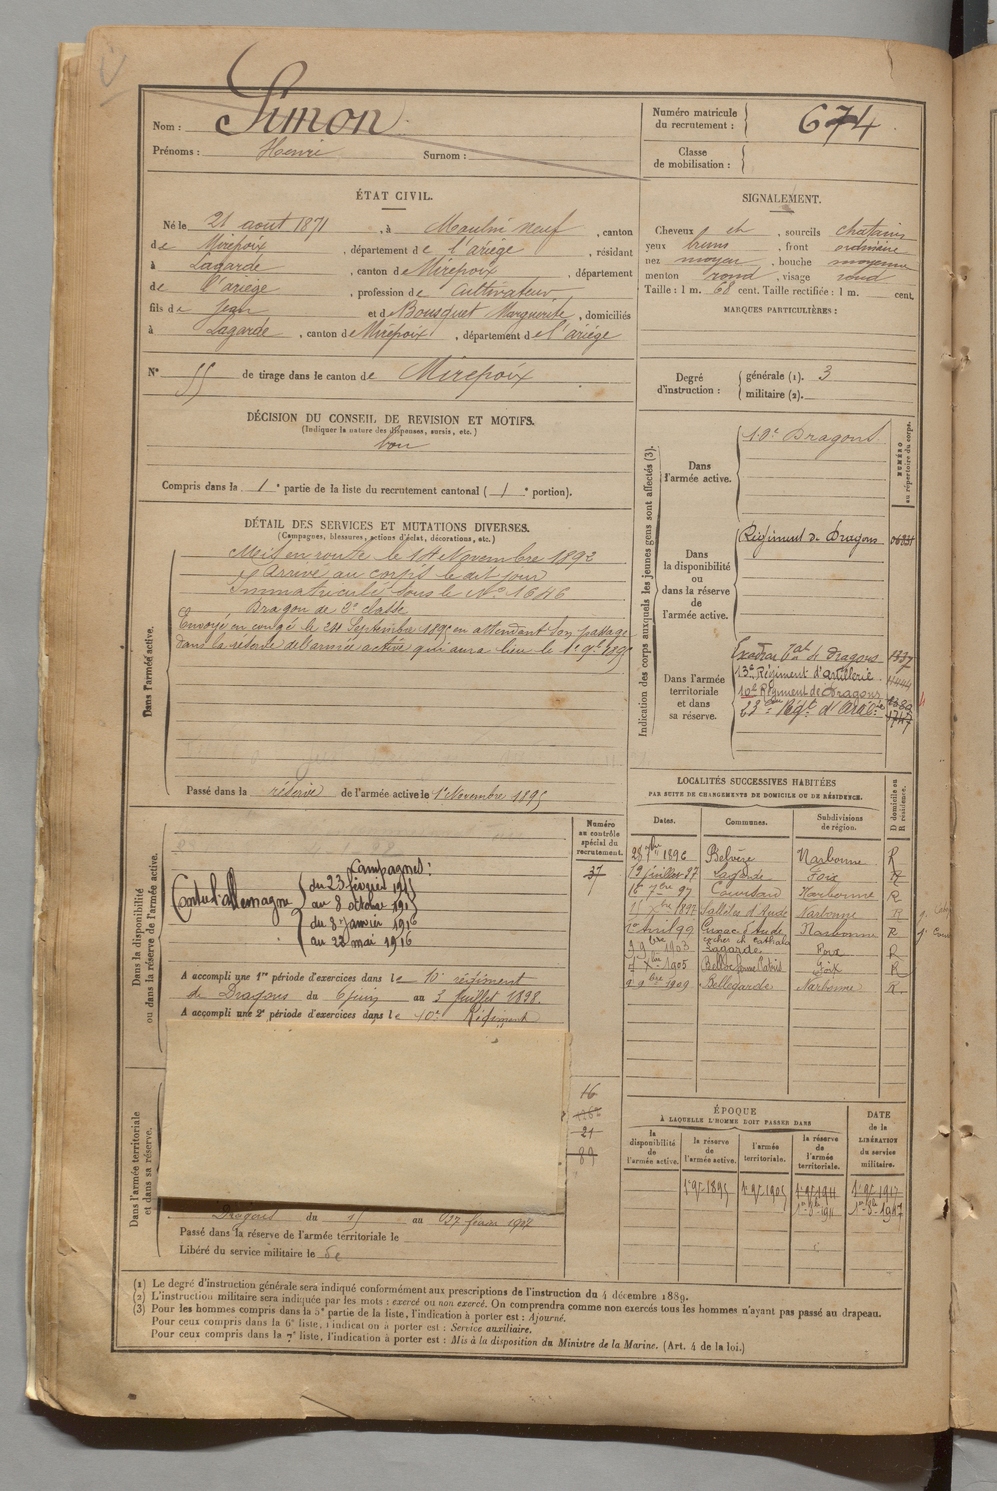 Nom : Simon
Numéro matricule du recrutement : 674
Prénoms : Henri Surnom :
Classe de mobilisation :
ÉTAT CIVIL.
Né le 21 août 1871, à Moulin neuf, canton
de Mirepoix, département de l'ariège, résidant
à Lagarde, canton de Mirepoix, département
de l'ariège, profession de Cultivateur
fils de Jean et de Bousquet Marguerite, domiciliés
à Lagarde, canton de Mirepoix, département de l'ariège
N° 55 de tirage dans le canton de Mirepoix
DÉCISION DU CONSEIL DE REVISION ET MOTIFS.
(Indiquer la nature des dispenses, sursis, etc.)
bon
Compris dans la 1e partie de la liste du recrutement cantonal (1e portion).
SIGNALEMENT.
Cheveux ch, sourcils chatains
yeux bruns, front ordinaire
nez moyen, bouche moyenne
menton rond, visage rond
Taille : 1 m. 68 cent. Taille rectifiée : 1 m. cent.
MARQUES PARTICULIÈRES :
Degré d'instruction :
générale (1). 3
militaire (2).
DÉTAIL DES SERVICES ET MUTATIONS DIVERSES.
(Campagnes, blessures, actions d'éclat, décorations, etc.)
Dans l'armée active.
Mis en route le 14 Novembre 1892
Arrivé au corps le dit jour
Immatriculé sous le N° 1646
Dragon de 2e classe
Envoyé en congé le 24 Septembre 1895 en attendant son passage
dans la réserve de l'armée active qui aura lieu le 1er 9bre 1895
Passé dans la réserve de l'armée active le 1er Novembre 1895
Indication des corps auxquels les jeunes gens sont affectés (3).
NUMÉRO au répertoire du corps.
Dans l'armée active.
10e Dragons
Dans la disponibilité ou dans la réserve de l'armée active.
Régiment de Dragons
Dans l'armée territoriale et dans sa réserve.
Escadron de Dragons 1337
13e Régiment d'artillerie 4444
10e Régiment de Dragons
23e Régt d'Art. 1747
LOCALITÉS SUCCESSIVES HABITÉES
PAR SUITE DE CHANGEMENTS DE DOMICILE OU DE RÉSIDENCE.
Dates. Communes. Subdivisions de région. D domicile ou R résidence.
28 7bre 1896 Belvèze Narbonne R
19 juillet 97 Lagarde Foix R
16 7bre 97 Coursan Narbonne R
1897 Sallèles d'Aude Narbonne R
Avril 99 Cuxac d'Aude Narbonne R
9bre 1903 Lagarde Foix R
Xbre 1905 Foix R
9bre 1909 Bellegarde Narbonne R
Dans la disponibilité ou dans la réserve de l'armée active.
Numéro au contrôle spécial du recrutement.
37
Campagnes :
Contre l'allemagne
du 23 février 1915
au 8 octobre 1915
du 8 janvier 1916
au 22 mai 1916
A accompli une 1re période d'exercices dans le 10e régiment
de Dragons du 6 juin au 3 juillet 1898.
A accompli une 2e période d'exercices dans le 10e Régiment
Dans l'armée territoriale et dans sa réserve.
16
21
89
Dragons du 15 au 27 février 1908
Passé dans la réserve de l'armée territoriale le
Libéré du service militaire le
ÉPOQUE
À LAQUELLE L'HOMME DOIT PASSER DANS
la disponibilité de l'armée active.
la réserve de l'armée active.
l'armée territoriale.
la réserve de l'armée territoriale.
DATE de la LIBÉRATION du service militaire.
1er 9bre 1895 1er 9bre 1905 1er 9bre 1911 1er 9bre 1917
1er 8bre 1911 1er 8bre 1917
(1) Le degré d'instruction générale sera indiqué conformément aux prescriptions de l'instruction du 4 décembre 1889.
(2) L'instruction militaire sera indiquée par les mots : exercé ou non exercé. On comprendra comme non exercés tous les hommes n'ayant pas passé au drapeau.
(3) Pour les hommes compris dans la 5e partie de la liste, l'indication à porter est : Ajourné.
Pour ceux compris dans la 6e liste, l'indication à porter est : Service auxiliaire.
Pour ceux compris dans la 7e liste, l'indication à porter est : Mis à la disposition du Ministre de la Marine. (Art. 4 de la loi.)